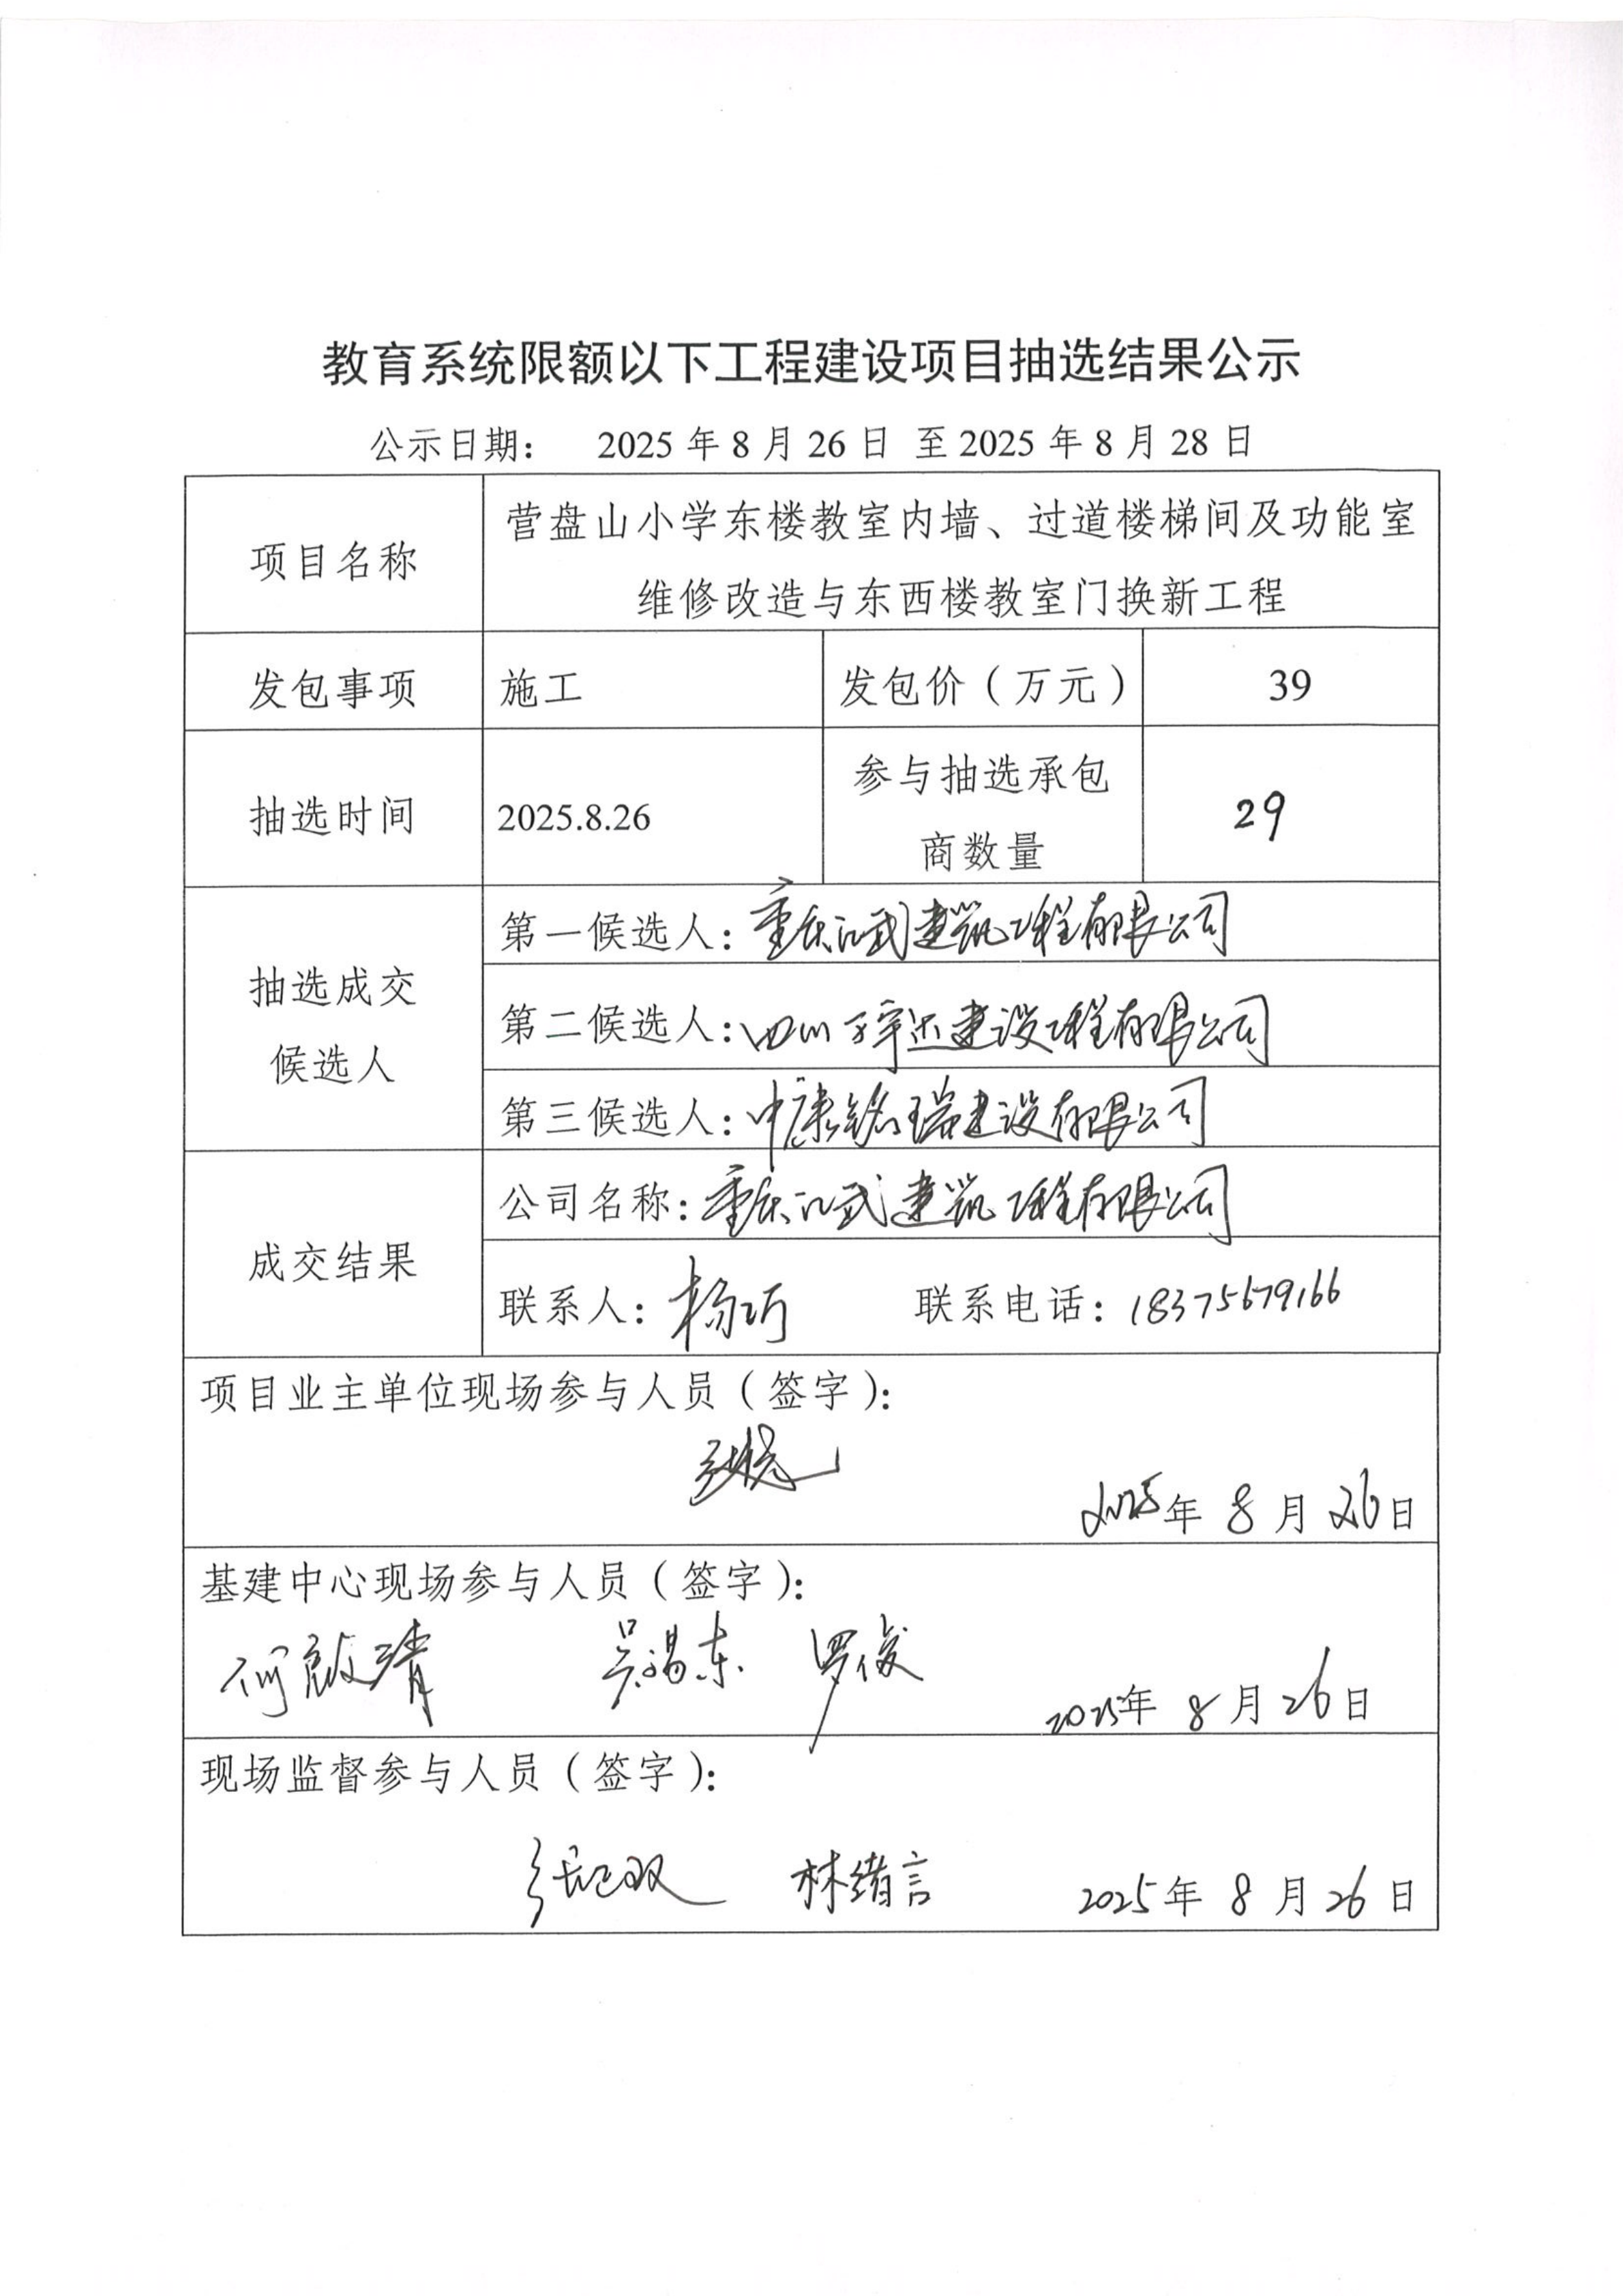 教育系统限额以下工程建设项目抽选结果公示
公示日期： 2025 年 8 月 26 日 至 2025 年 8 月 28 日
项目名称
营盘山小学东楼教室内墙、过道楼梯间及功能室
维修改造与东西楼教室门换新工程
发包事项 施工 发包价（万元） 39
抽选时间 2025.8.26
参与抽选承包
商数量
29
抽选成交
候选人
第一候选人：重庆江武建筑工程有限公司
第二候选人：四川 建设工程有限公司
第三候选人：中康铭瑞建设有限公司
成交结果
公司名称：重庆江武建筑工程有限公司
联系人：杨 联系电话：18375679166
项目业主单位现场参与人员（签字）：
2025年 8 月 26日
基建中心现场参与人员（签字）：
何 吴锡东 罗俊
2025年 8 月 26日
现场监督参与人员（签字）：
林绪言 2025年 8 月 26 日